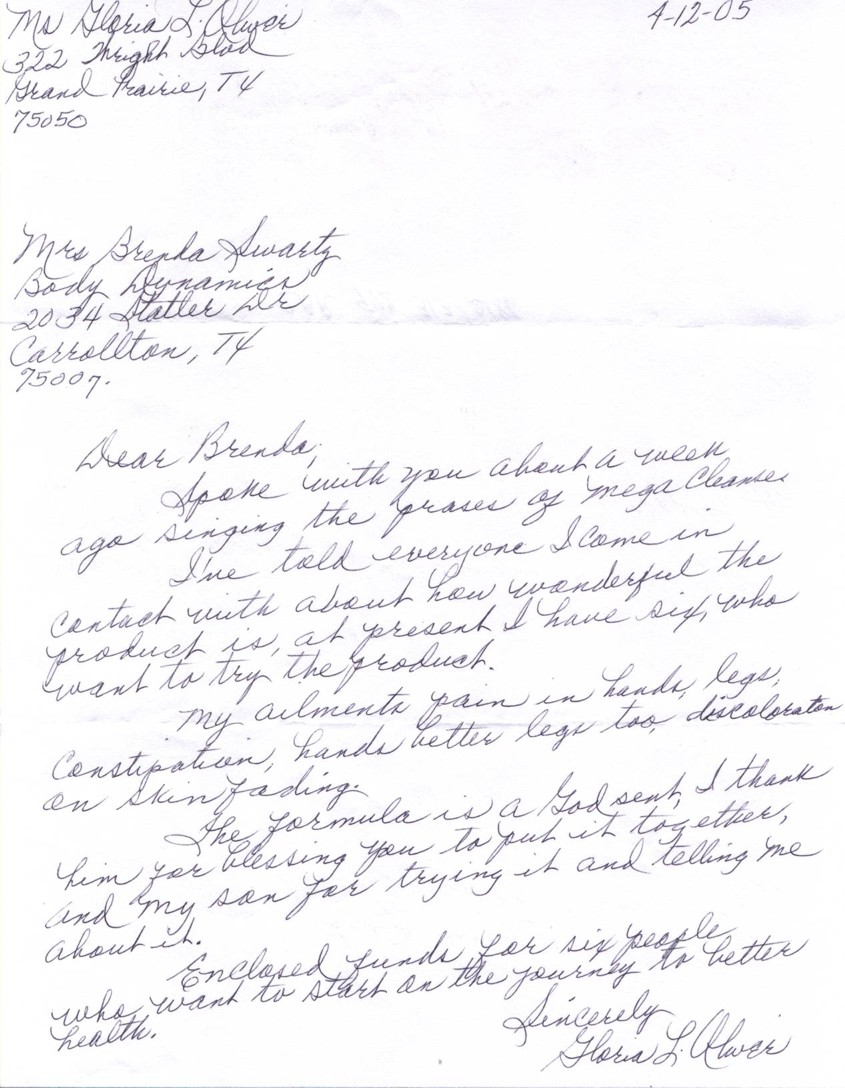 Ms Gloria L. Oliver
4-12-05
322 Wright Blvd
Grand Prairie, TX
75050
Mrs Brenda Swartz
Body Dynamics
2034 Statler Dr
Carrollton, TX
75007.
Dear Brenda,
Spoke with you about a week
ago singing the prases of Mega Cleanse.
I've told everyone I come in
contact with about how wonderful the
product is, at present I have six, who
want to try the product.
My ailments pain in hands, legs,
constipation, hands better legs too, discoloraton
on skin fading.
The formula is a God sent, I thank
him for blessing you to put it together,
and my son for trying it and telling me
about it.
Enclosed funds for six people
who want to start on the journey to better
health.
Sincerely
Gloria L. Oliver